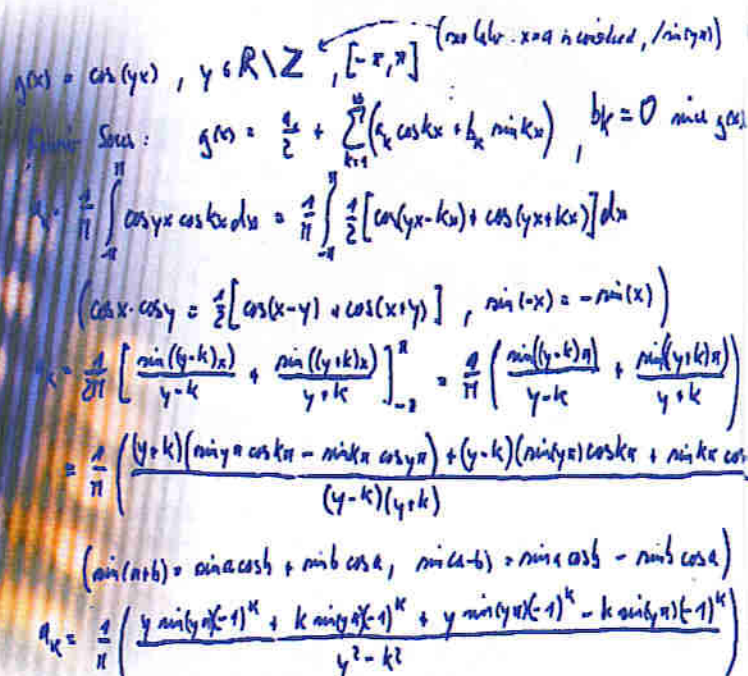 g(x) = cos(yx) , y ∈ R\Z , [-π,π]
g(x) = a₀/2 + ∑_{k=1}^{∞} (a_k cos kx + b_k sin kx) , b_k = 0 since g(x)
1/π ∫_{-π}^{π} cos yx cos kx dx = 1/π ∫_{-π}^{π} 1/2 [cos(yx-kx) + cos(yx+kx)] dx
(cos x · cos y = 1/2 [cos(x-y) + cos(x+y)] , sin(-x) = -sin(x))
a_k = 1/2π [ sin((y-k)x)/(y-k) + sin((y+k)x)/(y+k) ]_{-π}^{π} = 1/π ( sin((y-k)π)/(y-k) + sin((y+k)π)/(y+k) )
= 1/π ( (y+k)(sin yπ cos kπ - sin kπ cos yπ) + (y-k)(sin(yπ) cos kπ + sin kπ cos / (y-k)(y+k) )
(sin(a+b) = sin a cos b + sin b cos a, sin(a-b) = sin a cos b - sin b cos a)
a_k = 1/π ( y sin(yπ)(-1)^k + k sin(yπ)(-1)^k + y sin(yπ)(-1)^k - k sin(yπ)(-1)^k / y² - k² )